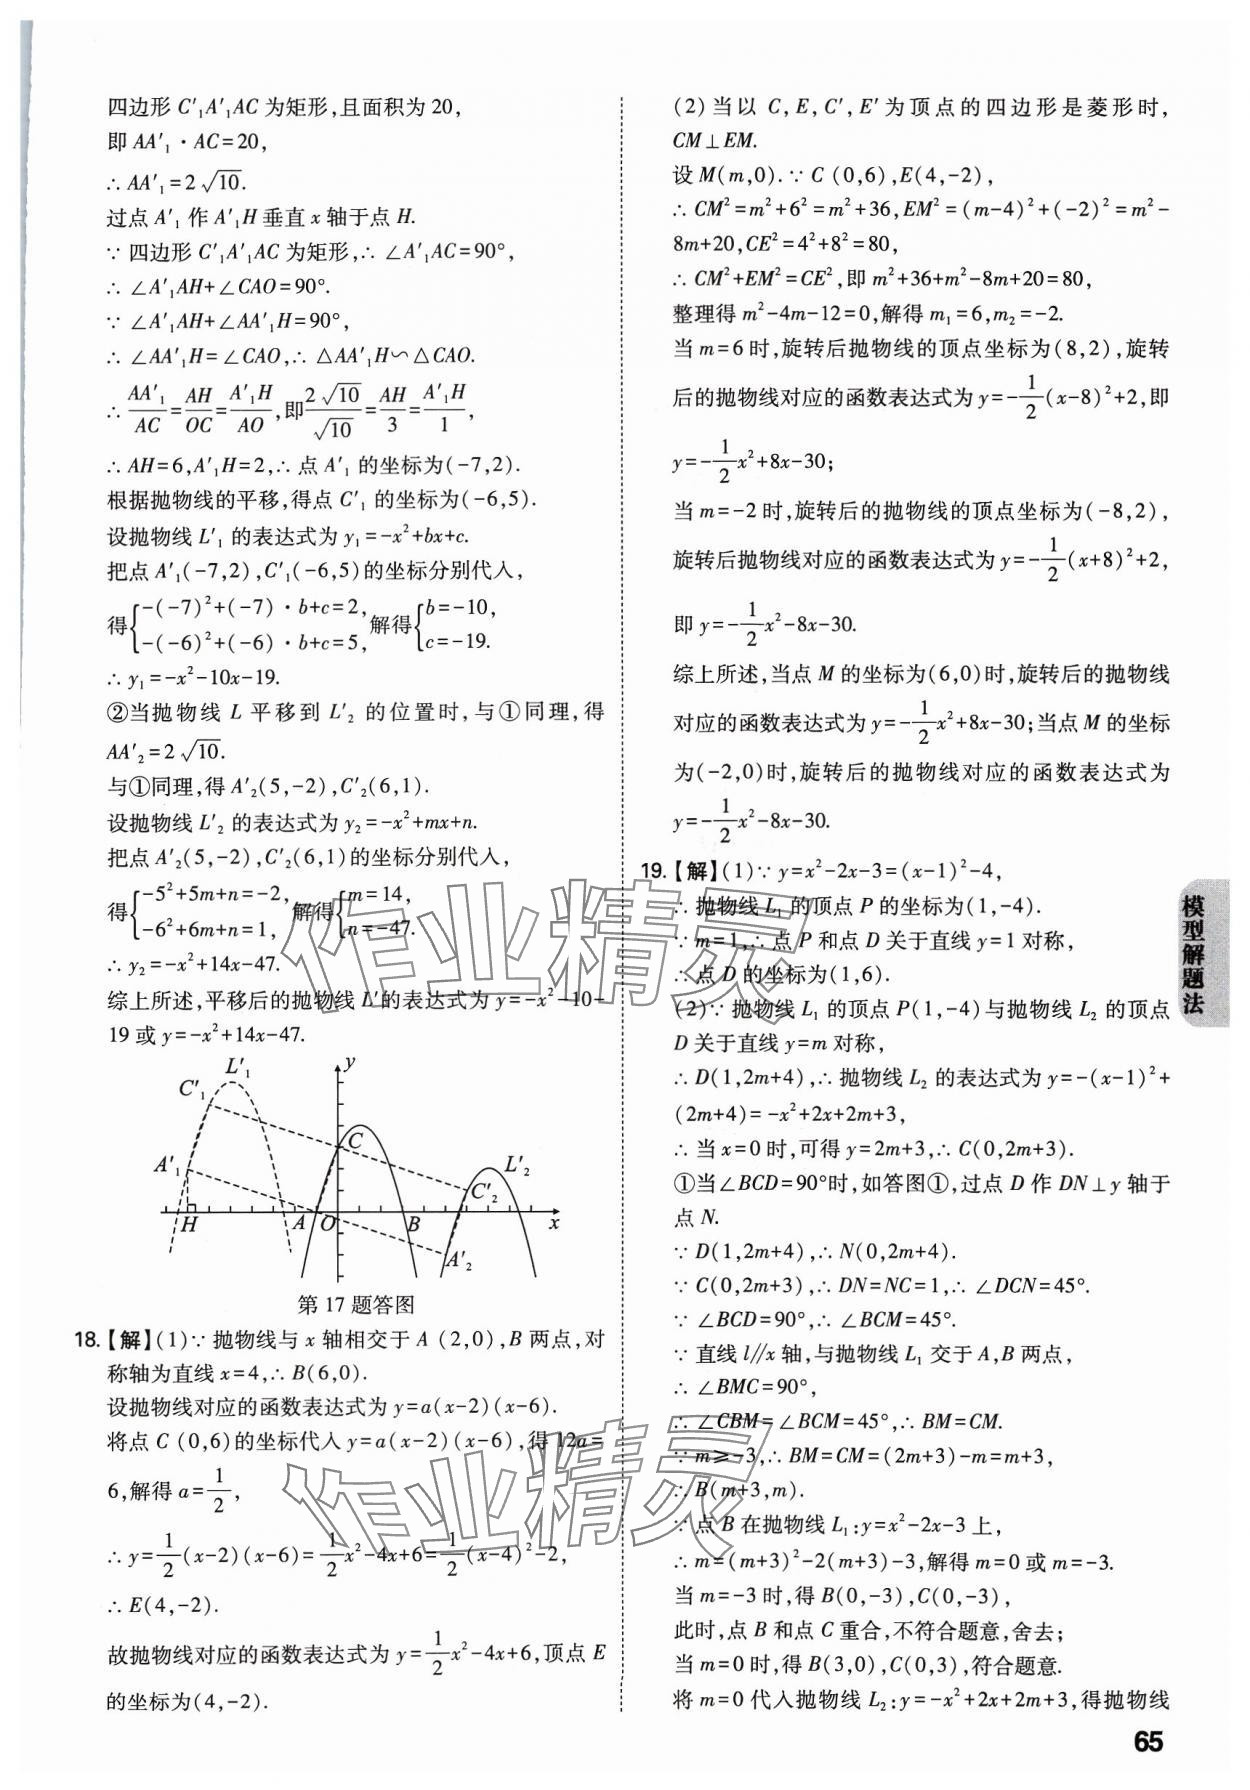 四边形 C′₁A′₁AC 为矩形,且面积为 20,
即 AA′₁·AC=20,
∴ AA′₁=2√10.
过点 A′₁ 作 A′₁H 垂直 x 轴于点 H.
∵ 四边形 C′₁A′₁AC 为矩形,∴ ∠A′₁AC=90°,
∴ ∠A′₁AH+∠CAO=90°.
∵ ∠A′₁AH+∠AA′₁H=90°,
∴ ∠AA′₁H=∠CAO,∴ △AA′₁H∽△CAO.
∴ AA′₁/AC=AH/OC=A′₁H/AO,即2√10/√10=AH/3=A′₁H/1,
∴ AH=6,A′₁H=2,∴ 点 A′₁ 的坐标为(-7,2).
根据抛物线的平移,得点 C′₁ 的坐标为(-6,5).
设抛物线 L′₁ 的表达式为 y₁=-x²+bx+c.
把点 A′₁(-7,2),C′₁(-6,5)的坐标分别代入,
得{-(-7)²+(-7)·b+c=2, -(-6)²+(-6)·b+c=5, 解得{b=-10, c=-19.
∴ y₁=-x²-10x-19.
②当抛物线 L 平移到 L′₂ 的位置时,与①同理,得
AA′₂=2√10.
与①同理,得 A′₂(5,-2),C′₂(6,1).
设抛物线 L′₂ 的表达式为 y₂=-x²+mx+n.
把点 A′₂(5,-2),C′₂(6,1)的坐标分别代入,
得{-5²+5m+n=-2, -6²+6m+n=1, 解得{m=14, n=-47.
∴ y₂=-x²+14x-47.
综上所述,平移后的抛物线 L′的表达式为 y=-x²-10-
19 或 y=-x²+14x-47.
L′₁
y
C′₁
C
A′₁
L′₂
C′₂
H
A
O
B
x
A′₂
第 17 题答图
18.【解】(1)∵ 抛物线与 x 轴相交于 A (2,0),B 两点,对
称轴为直线 x=4,∴ B(6,0).
设抛物线对应的函数表达式为 y=a(x-2)(x-6).
将点 C (0,6)的坐标代入 y=a(x-2)(x-6),得 12a=
6,解得 a=1/2,
∴ y=1/2(x-2)(x-6)=1/2x²-4x+6=1/2(x-4)²-2,
∴ E(4,-2).
故抛物线对应的函数表达式为 y=1/2x²-4x+6,顶点 E
的坐标为(4,-2).
(2)当以 C,E,C′,E′为顶点的四边形是菱形时,
CM⊥EM.
设 M(m,0).∵ C (0,6),E(4,-2),
∴ CM²=m²+6²=m²+36,EM²=(m-4)²+(-2)²=m²-
8m+20,CE²=4²+8²=80,
∴ CM²+EM²=CE²,即 m²+36+m²-8m+20=80,
整理得 m²-4m-12=0,解得 m₁=6,m₂=-2.
当 m=6 时,旋转后抛物线的顶点坐标为(8,2),旋转
后的抛物线对应的函数表达式为 y=-1/2(x-8)²+2,即
y=-1/2x²+8x-30;
当 m=-2 时,旋转后的抛物线的顶点坐标为(-8,2),
旋转后抛物线对应的函数表达式为 y=-1/2(x+8)²+2,
即 y=-1/2x²-8x-30.
综上所述,当点 M 的坐标为(6,0)时,旋转后的抛物线
对应的函数表达式为 y=-1/2x²+8x-30;当点 M 的坐标
为(-2,0)时,旋转后的抛物线对应的函数表达式为
y=-1/2x²-8x-30.
19.【解】(1)∵ y=x²-2x-3=(x-1)²-4,
∴ 抛物线 L₁ 的顶点 P 的坐标为(1,-4).
∵ m=1,∴ 点 P 和点 D 关于直线 y=1 对称,
∴ 点 D 的坐标为(1,6).
(2)∵ 抛物线 L₁ 的顶点 P(1,-4)与抛物线 L₂ 的顶点
D 关于直线 y=m 对称,
∴ D(1,2m+4),∴ 抛物线 L₂ 的表达式为 y=-(x-1)²+
(2m+4)=-x²+2x+2m+3,
∴ 当 x=0 时,可得 y=2m+3,∴ C(0,2m+3).
①当∠BCD=90°时,如答图①,过点 D 作 DN⊥y 轴于
点 N.
∵ D(1,2m+4),∴ N(0,2m+4).
∵ C(0,2m+3),∴ DN=NC=1,∴ ∠DCN=45°.
∵ ∠BCD=90°,∴ ∠BCM=45°.
∵ 直线 l∥x 轴,与抛物线 L₁ 交于 A,B 两点,
∴ ∠BMC=90°,
∴ ∠CBM=∠BCM=45°,∴ BM=CM.
∵ m≥-3,∴ BM=CM=(2m+3)-m=m+3,
∴ B(m+3,m).
∵ 点 B 在抛物线 L₁:y=x²-2x-3 上,
∴ m=(m+3)²-2(m+3)-3,解得 m=0 或 m=-3.
当 m=-3 时,得 B(0,-3),C(0,-3),
此时,点 B 和点 C 重合,不符合题意,舍去;
当 m=0 时,得 B(3,0),C(0,3),符合题意.
将 m=0 代入抛物线 L₂:y=-x²+2x+2m+3,得抛物线
模型解题法
65
作业精灵
作业精灵